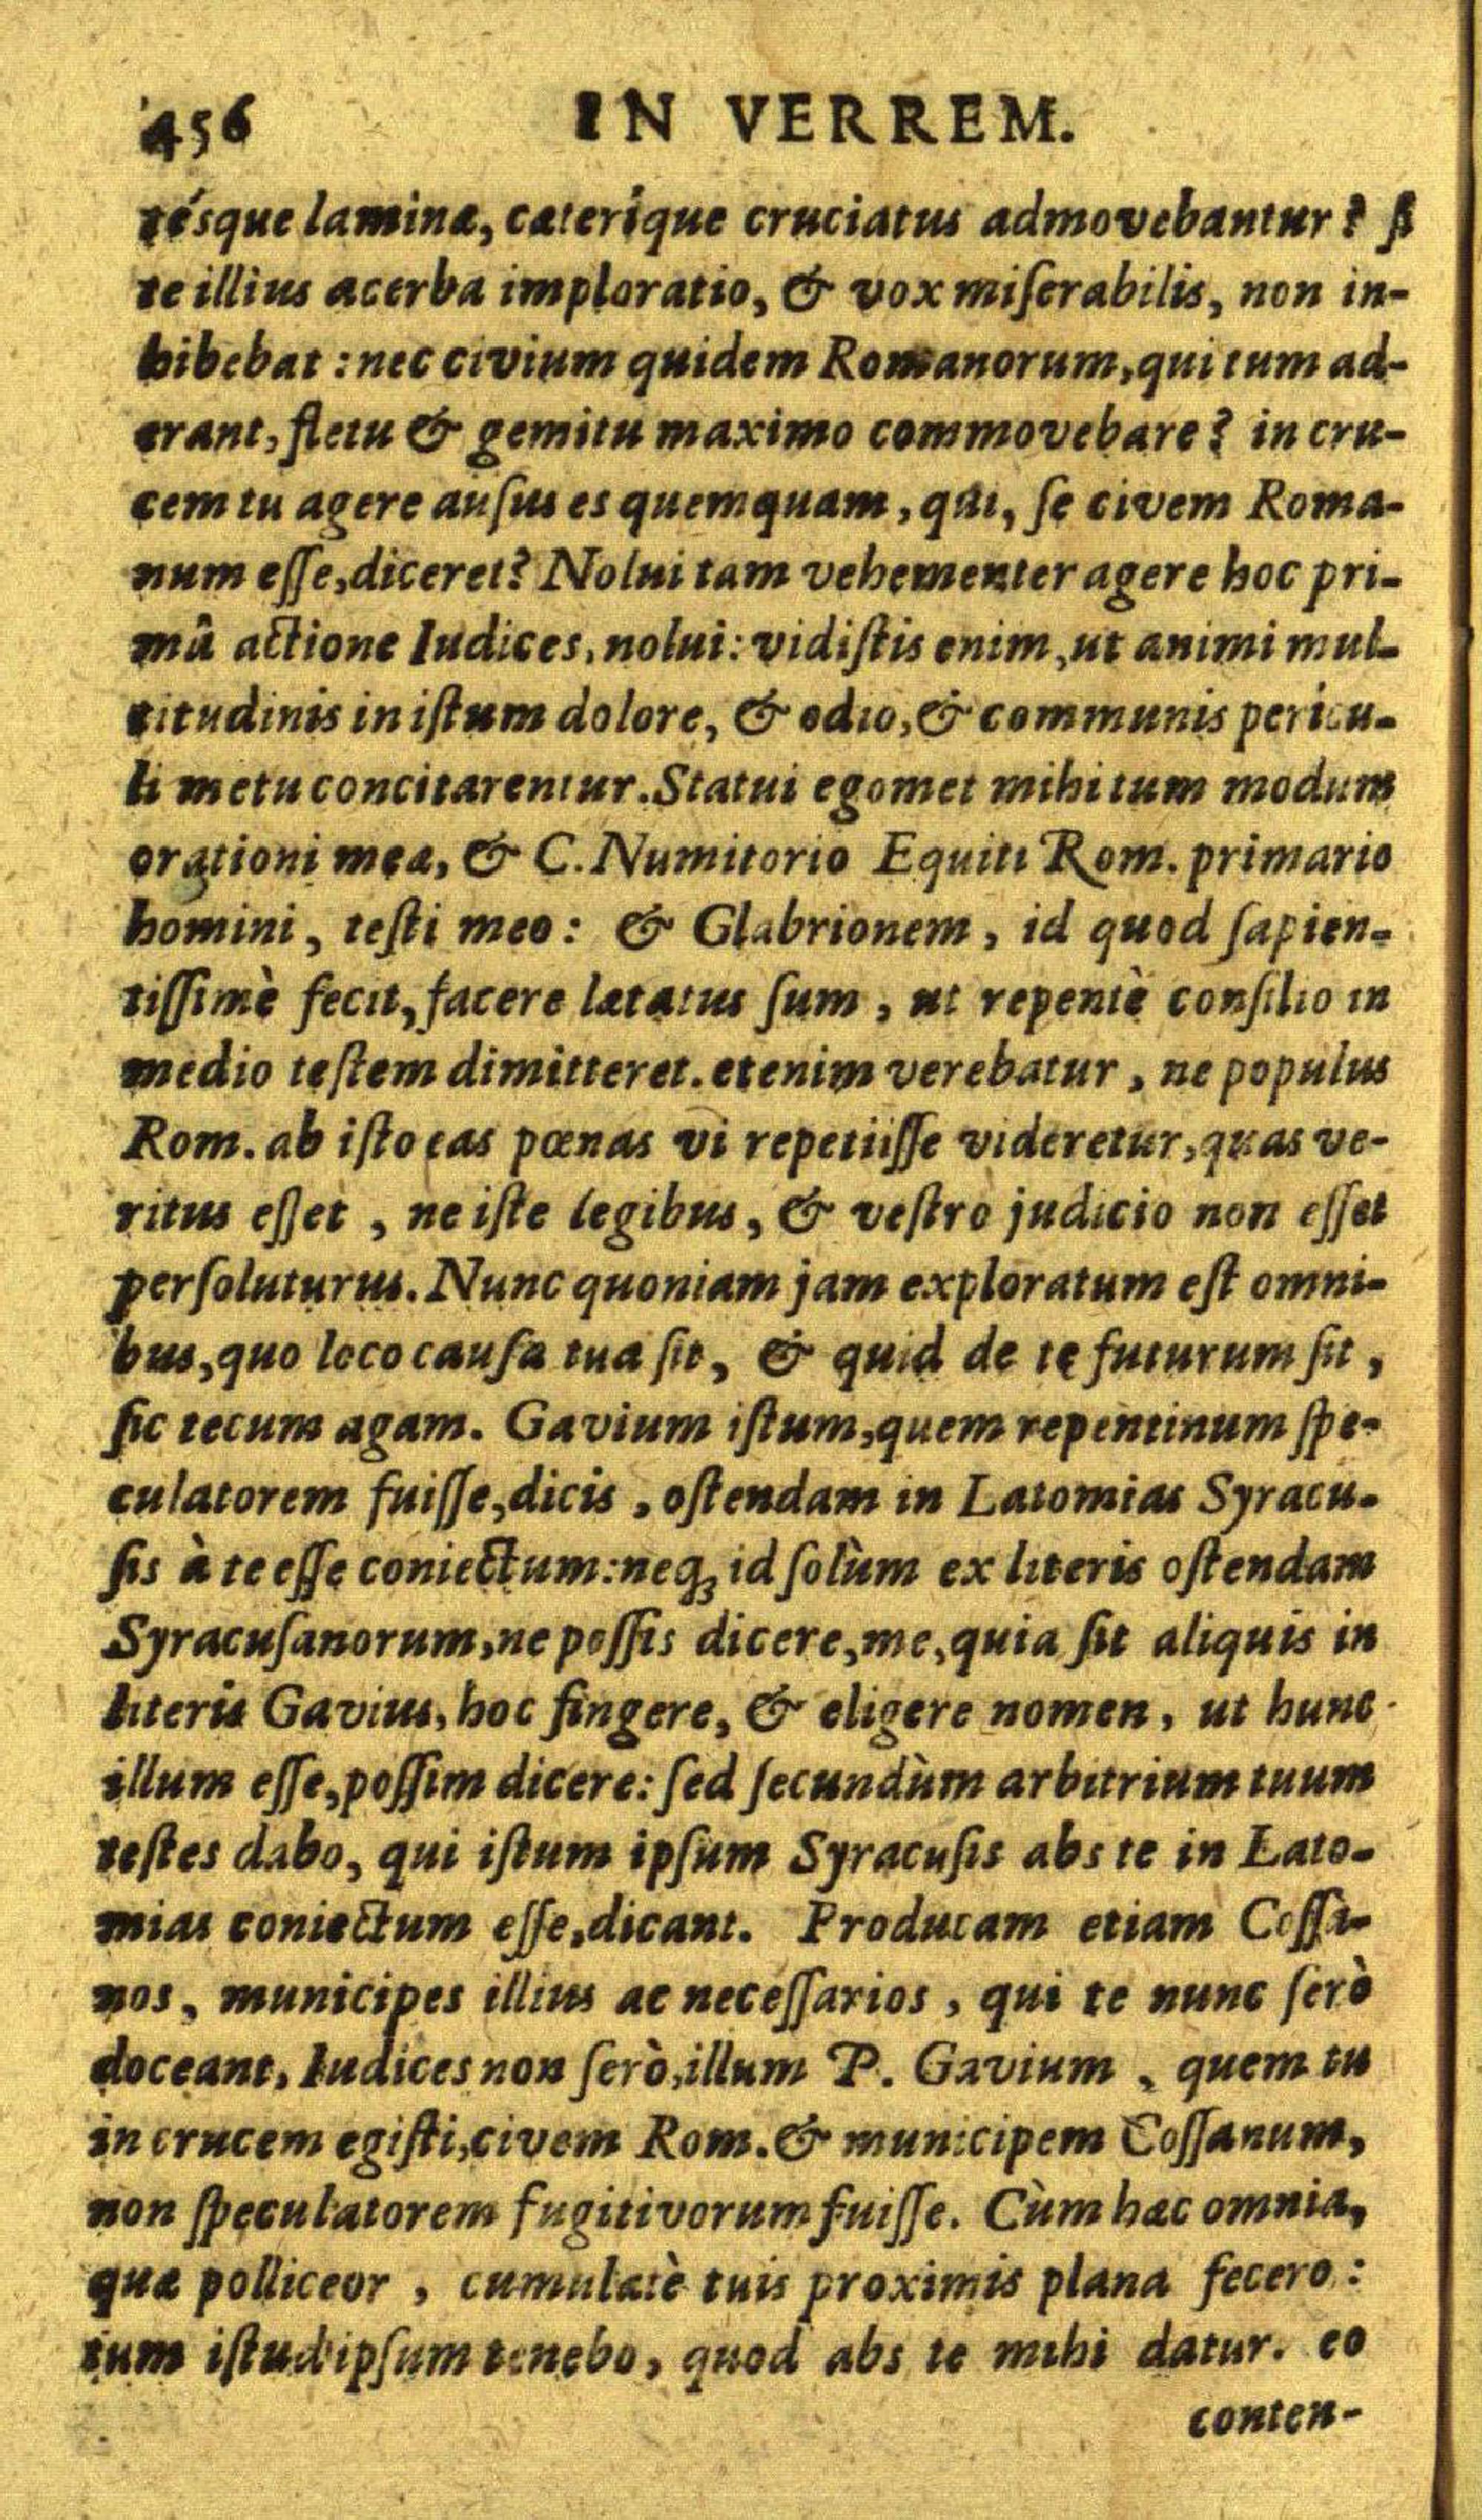 456 IN VERREM.
tésque laminæ, cæteríque cruciatus admovebantur? ſi
te illius acerba imploratio, & vox miſerabilis, non in-
hibebat: nec civium quidem Romanorum, qui tum ad-
erant, fletu & gemitu maximo commovebare? in cru-
cem tu agere auſus es quemquam, qui, ſe civem Roma-
num eſſe, diceret? Nolui tam vehementer agere hoc pri-
mâ actione Iudices, nolui: vidiſtis enim, ut animi mul-
titudinis in iſtum dolore, & odio, & communis pericu-
li metu concitarentur. Statui egomet mihi tum modum
orationi meæ, & C. Numitorio Equiti Rom. primario
homini, teſti meo: & Glabrionem, id quod ſapien-
tiſſimè fecit, facere lætatus ſum, ut repentè conſilio in
medio teſtem dimitteret. etenim verebatur, ne populus
Rom. ab iſto eas pœnas vi repetiiſſe videretur, quas ve-
ritus eſſet, ne iſte legibus, & veſtro judicio non eſſet
perſoluturus. Nunc quoniam jam exploratum eſt omni-
bus, quo loco cauſa tua ſit, & quid de te futurum ſit,
ſic tecum agam. Gavium iſtum, quem repentinum ſpe-
culatorem fuiſſe, dicis, oſtendam in Latomias Syracu-
ſis à te eſſe coniectum: neq; id ſolùm ex literis oſtendam
Syracuſanorum, ne poſſis dicere, me, quia ſit aliquis in
literis Gavius, hoc fingere, & eligere nomen, ut hunc
illum eſſe, poſſim dicere: ſed ſecundùm arbitrium tuum
teſtes dabo, qui iſtum ipſum Syracuſis abs te in Lato-
mias coniectum eſſe, dicant. Producam etiam Coſſa-
nos, municipes illius ac neceſſarios, qui te nunc ſerò
doceant, Iudices non ſerò, illum P. Gavium, quem tu
in crucem egiſti, civem Rom. & municipem Coſſanum,
non ſpeculatorem fugitivorum fuiſſe. Cùm hæc omnia,
quæ polliceor, cumulatè tuis proximis plana fecero:
tum iſtud ipſum tenebo, quod abs te mihi datur. eo
conten-